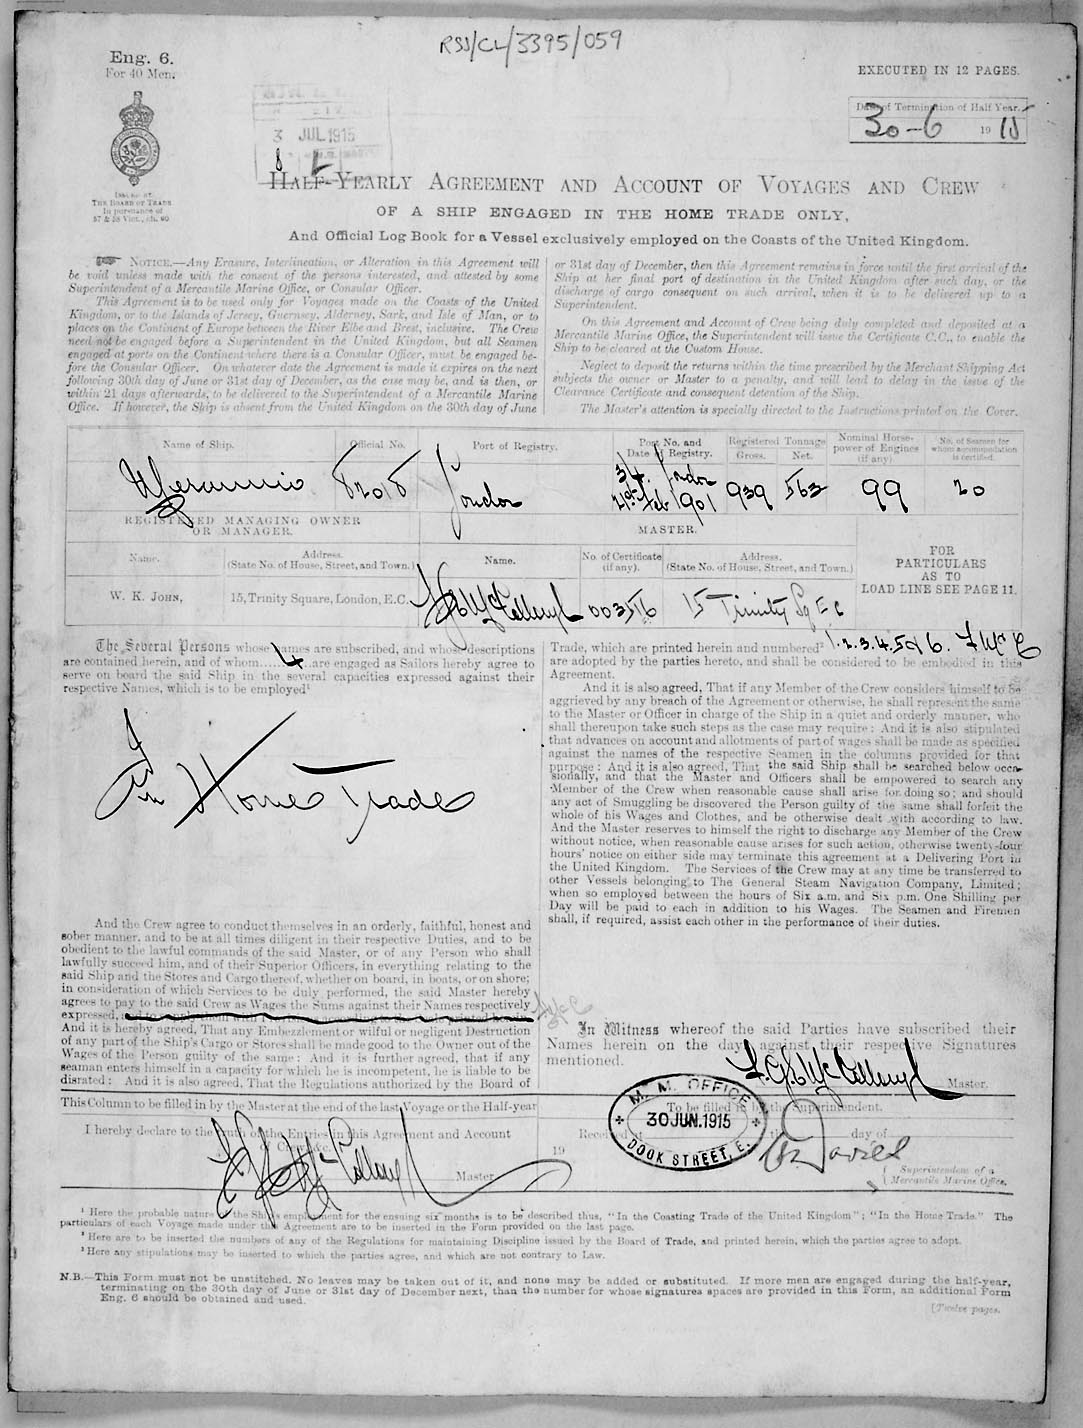 RSS/CL/3395/059
Eng. 6.
For 40 Men.
EXECUTED IN 12 PAGES.
Date of Termination of Half Year.
30-6 1915
3 JUL 1915
ISSUED BY
THE BOARD OF TRADE
In pursuance of
57 & 58 Vict., ch. 60
HALF-YEARLY AGREEMENT AND ACCOUNT OF VOYAGES AND CREW
OF A SHIP ENGAGED IN THE HOME TRADE ONLY,
And Official Log Book for a Vessel exclusively employed on the Coasts of the United Kingdom.
NOTICE.—Any Erasure, Interlineation, or Alteration in this Agreement will
be void unless made with the consent of the persons interested, and attested by some
Superintendent of a Mercantile Marine Office, or Consular Officer.
This Agreement is to be used only for Voyages made on the Coasts of the United
Kingdom, or to the Islands of Jersey, Guernsey, Alderney, Sark, and Isle of Man, or to
places on the Continent of Europe between the River Elbe and Brest, inclusive. The Crew
need not be engaged before a Superintendent in the United Kingdom, but all Seamen
engaged at ports on the Continent where there is a Consular Officer, must be engaged be-
fore the Consular Officer. On whatever date the Agreement is made it expires on the next
following 30th day of June or 31st day of December, as the case may be, and is then, or
within 21 days afterwards, to be delivered to the Superintendent of a Mercantile Marine
Office. If however, the Ship is absent from the United Kingdom on the 30th day of June
or 31st day of December, then this Agreement remains in force until the first arrival of the
Ship at her final port of destination in the United Kingdom after such day, or the
discharge of cargo consequent on such arrival, when it is to be delivered up to a
Superintendent.
On this Agreement and Account of Crew being duly completed and deposited at a
Mercantile Marine Office, the Superintendent will issue the Certificate C.C., to enable the
Ship to be cleared at the Custom House.
Neglect to deposit the returns within the time prescribed by the Merchant Shipping Act
subjects the owner or Master to a penalty, and will lead to delay in the issue of the
Clearance Certificate and consequent detention of the Ship.
The Master's attention is specially directed to the Instructions printed on the Cover.
Name of Ship. Official No. Port of Registry. Port No. and Date of Registry. Registered Tonnage Gross. Net. Nominal Horse-power of Engines (if any). No. of Seamen for whom accommodation is certified.
London 34 London 21st Feb 1901 939 563 99 20
REGISTERED MANAGING OWNER
OR MANAGER.
MASTER.
Name. Address. (State No. of House, Street, and Town.) Name. No. of Certificate (if any). Address. (State No. of House, Street, and Town.)
FOR
PARTICULARS
AS TO
LOAD LINE SEE PAGE 11.
W. K. JOHN, 15, Trinity Square, London, E.C. 003516 15 Trinity Sq E C
The Several Persons whose names are subscribed, and whose descriptions
are contained herein, and of whom 4 are engaged as Sailors hereby agree to
serve on board the said Ship in the several capacities expressed against their
respective Names, which is to be employed¹
In Home Trade
And the Crew agree to conduct themselves in an orderly, faithful, honest and
sober manner, and to be at all times diligent in their respective Duties, and to be
obedient to the lawful commands of the said Master, or of any Person who shall
lawfully succeed him, and of their Superior Officers, in everything relating to the
said Ship and the Stores and Cargo thereof, whether on board, in boats, or on shore;
in consideration of which Services to be duly performed, the said Master hereby
agrees to pay to the said Crew as Wages the Sums against their Names respectively
expressed,
And it is hereby agreed, That any Embezzlement or wilful or negligent Destruction
of any part of the Ship's Cargo or Stores shall be made good to the Owner out of the
Wages of the Person guilty of the same: And it is further agreed, that if any
seaman enters himself in a capacity for which he is incompetent, he is liable to be
disrated: And it is also agreed, That the Regulations authorized by the Board of
Trade, which are printed herein and numbered² 1.2.3.4.5 & 6. F McC
are adopted by the parties hereto, and shall be considered to be embodied in this
Agreement.
And it is also agreed, That if any Member of the Crew considers himself to be
aggrieved by any breach of the Agreement or otherwise, he shall represent the same
to the Master or Officer in charge of the Ship in a quiet and orderly manner, who
shall thereupon take such steps as the case may require: And it is also stipulated
that advances on account and allotments of part of wages shall be made as specified
against the names of the respective Seamen in the columns provided for that
purpose: And it is also agreed, That the said Ship shall be searched below occa-
sionally, and that the Master and Officers shall be empowered to search any
Member of the Crew when reasonable cause shall arise for doing so; and should
any act of Smuggling be discovered the Person guilty of the same shall forfeit the
whole of his Wages and Clothes, and be otherwise dealt with according to law.
And the Master reserves to himself the right to discharge any Member of the Crew
without notice, when reasonable cause arises for such action, otherwise twenty-four
hours' notice on either side may terminate this agreement at a Delivering Port in
the United Kingdom. The Services of the Crew may at any time be transferred to
other Vessels belonging to The General Steam Navigation Company, Limited;
when so employed between the hours of Six a.m. and Six p.m. One Shilling per
Day will be paid to each in addition to his Wages. The Seamen and Firemen
shall, if required, assist each other in the performance of their duties.
In Witness whereof the said Parties have subscribed their
Names herein on the day against their respective Signatures
mentioned.
Master.
This Column to be filled in by the Master at the end of the last Voyage or the Half-year
I hereby declare to the truth of the Entries in this Agreement and Account
of Crew, &c.
Master
To be filled in by the Superintendent.
M. M. OFFICE
30 JUN. 1915
DOCK STREET, E.
19 Received the day of
Davies
Superintendent of a
Mercantile Marine Office.
¹ Here the probable nature of the Ship's employment for the ensuing six months is to be described thus, "In the Coasting Trade of the United Kingdom"; "In the Home Trade." The
particulars of each Voyage made under this Agreement are to be inserted in the Form provided on the last page.
² Here are to be inserted the numbers of any of the Regulations for maintaining Discipline issued by the Board of Trade, and printed herein, which the parties agree to adopt.
³ Here any stipulations may be inserted to which the parties agree, and which are not contrary to Law.
N.B.—This Form must not be unstitched. No leaves may be taken out of it, and none may be added or substituted. If more men are engaged during the half-year,
terminating on the 30th day of June or 31st day of December next, than the number for whose signatures spaces are provided in this Form, an additional Form
Eng. 6 should be obtained and used.
[Twelve pages.